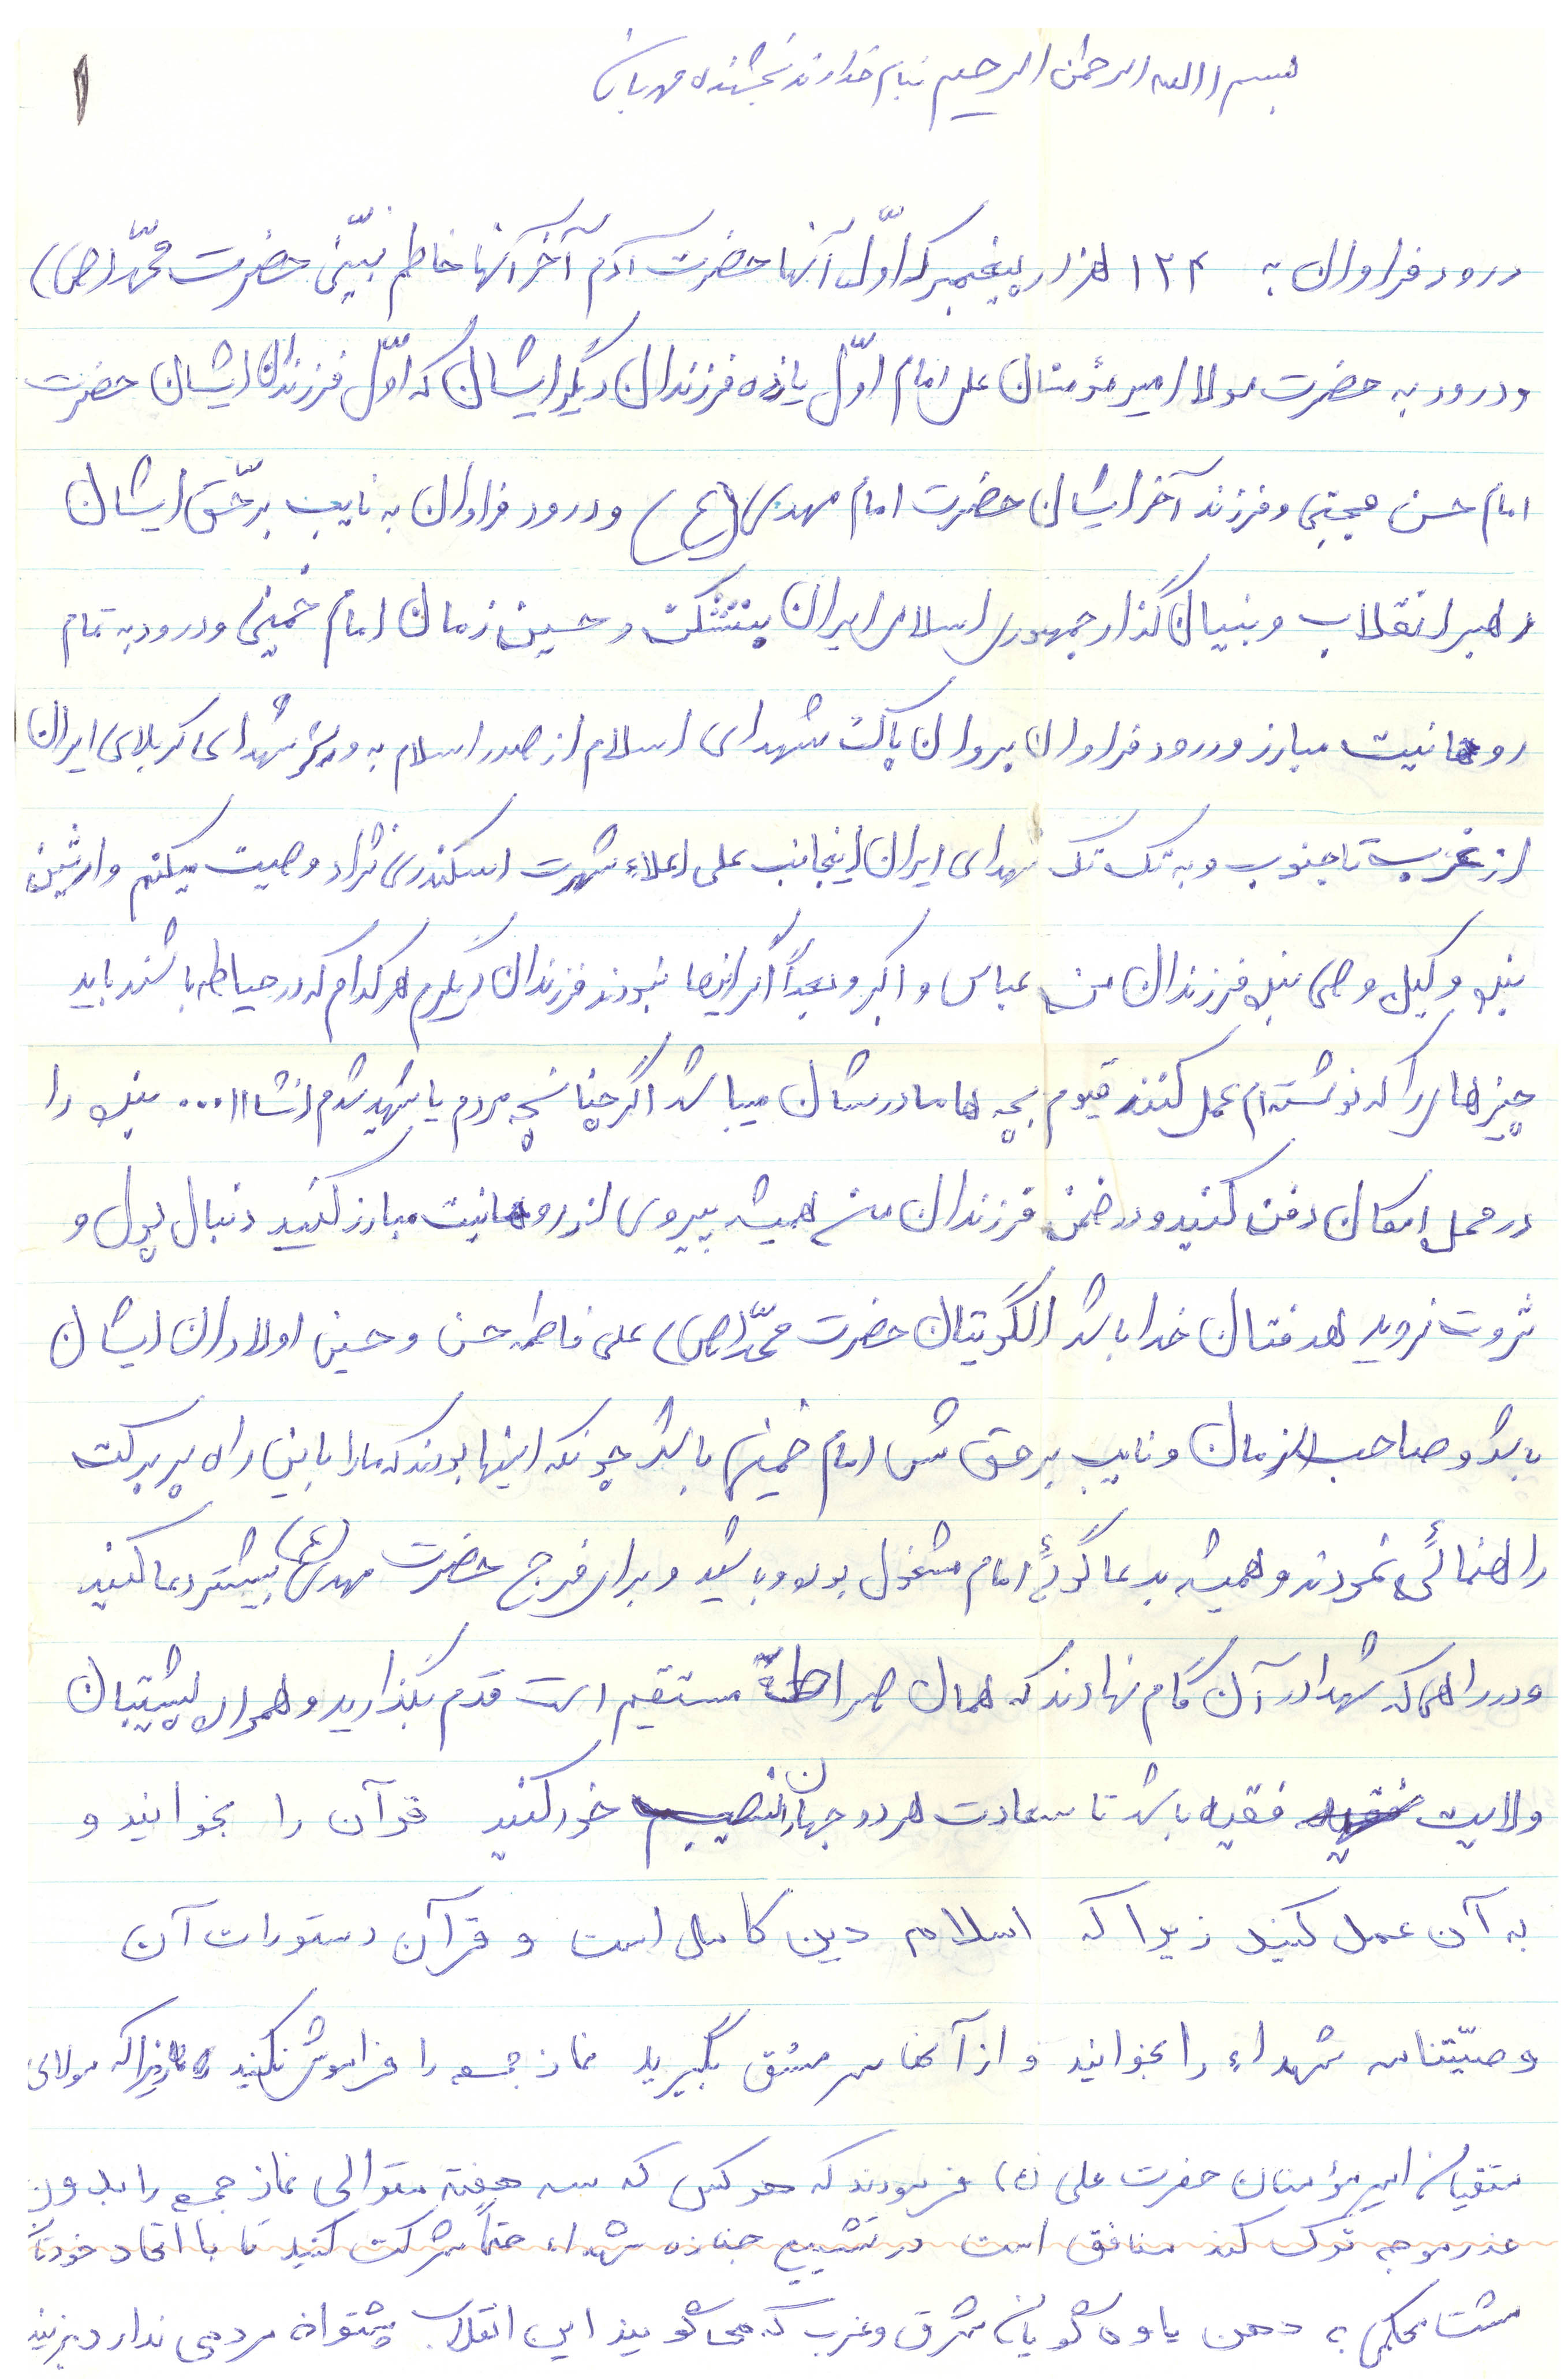 ۱
بسم االله الرحمن الرحیم بنام خداوند بخشنده مهربان
درود فراوان به ۱۲۴ هزار پیغمبر که اوّل آنها حضرت آدم آخر آنها خاطم نبیّنی حضرت محمّد (ص)
و درود به حضرت مولا امیر مؤمنان علی امام اوّل یازده فرزندان دیگر ایشان که اوّل فرزندان ایشان حضرت
امام حسن مجتبی و فرزند آخر ایشان حضرت امام مهدی (عج) و درود فراوان به نایب برحّق ایشان
رهبر انقلاب و بنیان گذار جمهوری اسلامی ایران بتشکن و حسین زمان امام خمینی و درود به تمام
روحانیت مبارز و درود فراوان بروان پاک شهدای اسلام از صدر اسلام به ویژه شهدای کربلای ایران
از غرب تا جنوب و به تک تک شهدای ایران اینجانب علی اعلاء شهرت اسکندری نژاد وصیت میکنم وارثین
بنده وکیل وصی بنده فرزندان من عباس و اکبر و بعداً اگر اینها نبودند فرزندان دیگرم هر کدام که در حیاطه باشند باید
چیزهای را که نوشته ام عمل کنند قیوم بچه ها مادرشان میباشد اگر چنانچه مردم یا شهید شدم انشااا... بنده را
در محل امکان دفن کنید و در ضمن فرزندان من همیشه پیروی از روحانیت مبارز کنید دنبال پول و
ثروت نروید هدفتان خدا باشد الگویتان حضرت محمّد (ص) علی فاطمه حسن و حسین اولادان ایشان
باشد و صاحب الزمان و نایب برحق ش امام خمینی باشد چونکه اینها بودند که مارا باین راه پر برکت
راهنمائی نمودند و همیشه بدعا گوئی امام مشغول بوده باشید و برای فرج حضرت مهدی (عج) بیشتر دعا کنید
و در راهی که شهدا در آن گام نهادند که همان صراط مستقیم است قدم بگذارید و همواره پشتیبان
ولایت فقیه باشد تا سعادت هر دو جهان را نصیب خود کنید قرآن را بخوانید و
به آن عمل کنید زیرا که اسلام دین کاملی است و قرآن دستورات آن
وصیّتنامه شهداء را بخوانید و از آنها سرمشق بگیرید نماز جمعه را فراموش نکنید زیرا که مولای
متقیان امیر مؤمنان حضرت علی (ع) فرمودند که هر کس که سه هفته متوالی نماز جمعه را بدون
عذر موجه ترک کند منافق است در تشییع جنازه شهداء حتماً شرکت کنید تا با اتحاد خودتان
مشت محکمی به دهن یاوه گویان شرق و غرب که می گویند این انقلاب پشتوانه مردمی ندارد بزنید